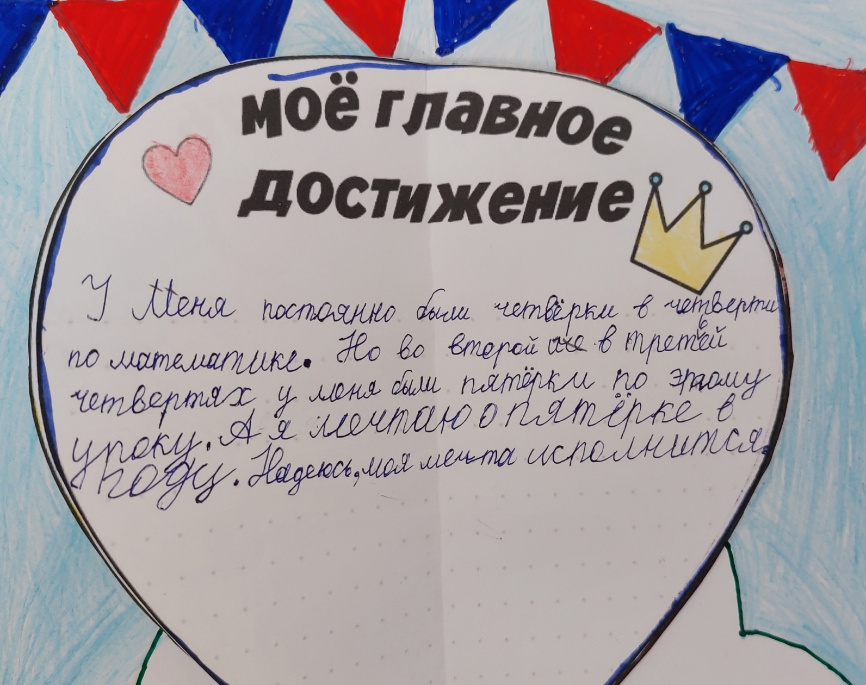 моё главное
достижение
У Меня постоянно были четвёрки в четверти
по математике. Но во второй и в третьей
четвертях у меня были пятёрки по этому
уроку. А я мечтаю о пятёрке в
году. Надеюсь, моя мечта исполнится.